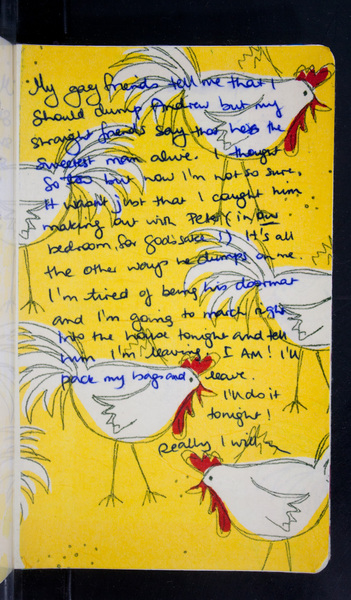 My gay friends tell me that I
should dump Andrew but my
straight friends say that he's the
sweetest man alive. I thought
so too but now I'm not so sure.
It wasn't just that I caught him
making out with Peter (in our
bedroom, for God's sake!) It's all
the other ways he dumps on me.
I'm tired of being his doormat
and I'm going to march right
into the house tonight and tell
him I'm leaving. I AM! I'll
pack my bag and leave.
I'll do it
tonight!
Really I will,